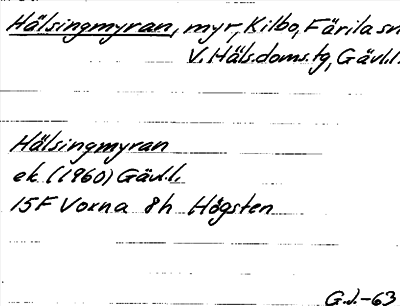 Hälsingmyran, myr, Kilbo, Färila sn
V. Häls.doms.tg, Gävl.l.
Hälsingmyran
ek. (1960) Gävl.l.
15F Voxna 8h Högsten
G.J.-63